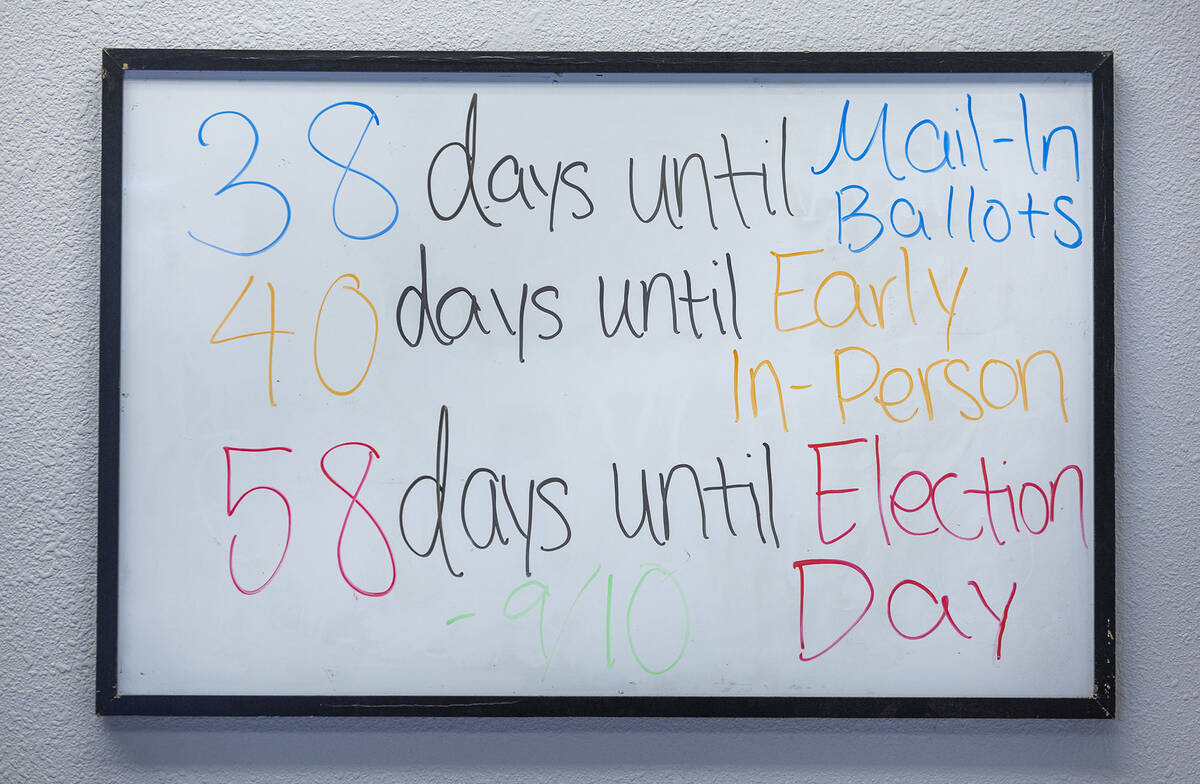 38 days until Mail-In
Ballots
40 days until Early
In-Person
58 days until Election
Day
- 9/10